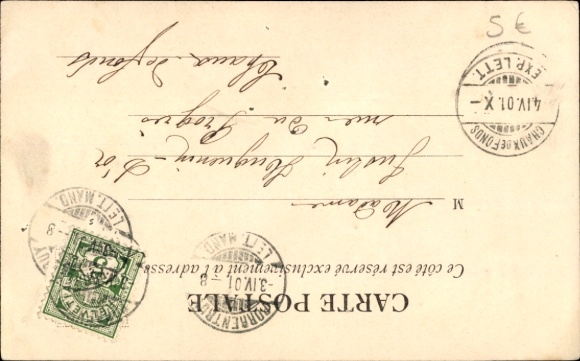 CARTE POSTALE
Ce côté est réservé exclusivement à l'adresse
PORRENTRUY
-3.IV.01.-8
LETT. MAND.
HELVETIA
5
M Madame
Huguenin-D'or
rue du Progrès
Chaux de fonds
CHAUX DE FONDS
4.IV.01.X-
EXP. LETT.
5€